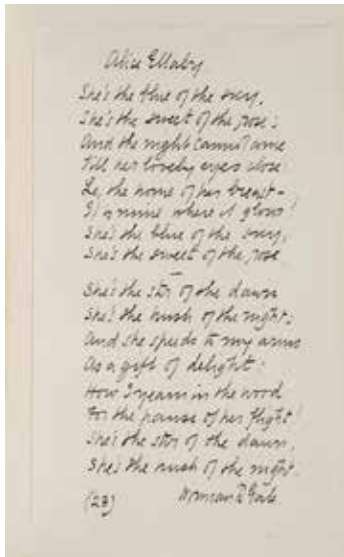 Alice Ellaby
She's the blue of the sky,
She's the sweet of the rose;
And the night cannot come
Till her lovely eyes close.
Lo, the home of her breast –
It is mine where it glows!
She's the blue of the sky,
She's the sweet of the rose
—
She's the star of the dawn
She's the hush of the night;
And she speeds to my arms
As a gift of delight.
How I yearn in the wood
For the pause of her flight!
She's the star of the dawn,
She's the hush of the night.
(28) Norman R Gale